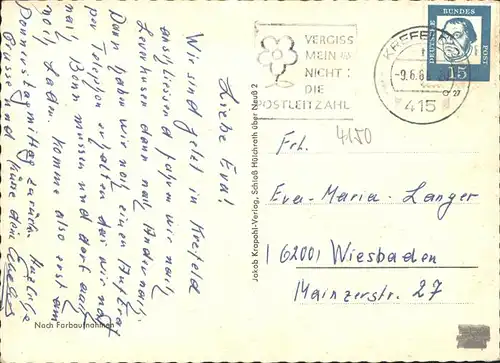 Liebe Eva!
Wir sind jetzt in Krefeld
anschliessend fahren wir nach
Leverkusen dann nach Andernach.
Dann haben wir noch einen Auftrag
per Telefon erhalten das wir noch
nach Bonn müssen und dort auch
noch Laden. Komme also erst am
Donnerstagmittag zurück. Herzliche
Grüsse und Küsse dein
Nach Farbaufnahmen
Jakob Krapohl-Verlag, Schloß Hülchrath über Neuß 2
VERGISS
MEIN
NICHT:
DIE
POSTLEITZAHL
KREFELD
-9.6.6
415
DEUTSCHE BUNDESPOST
15
4150
Frl.
Eva-Maria Langer
62001 Wiesbaden
Mainzerstr. 27